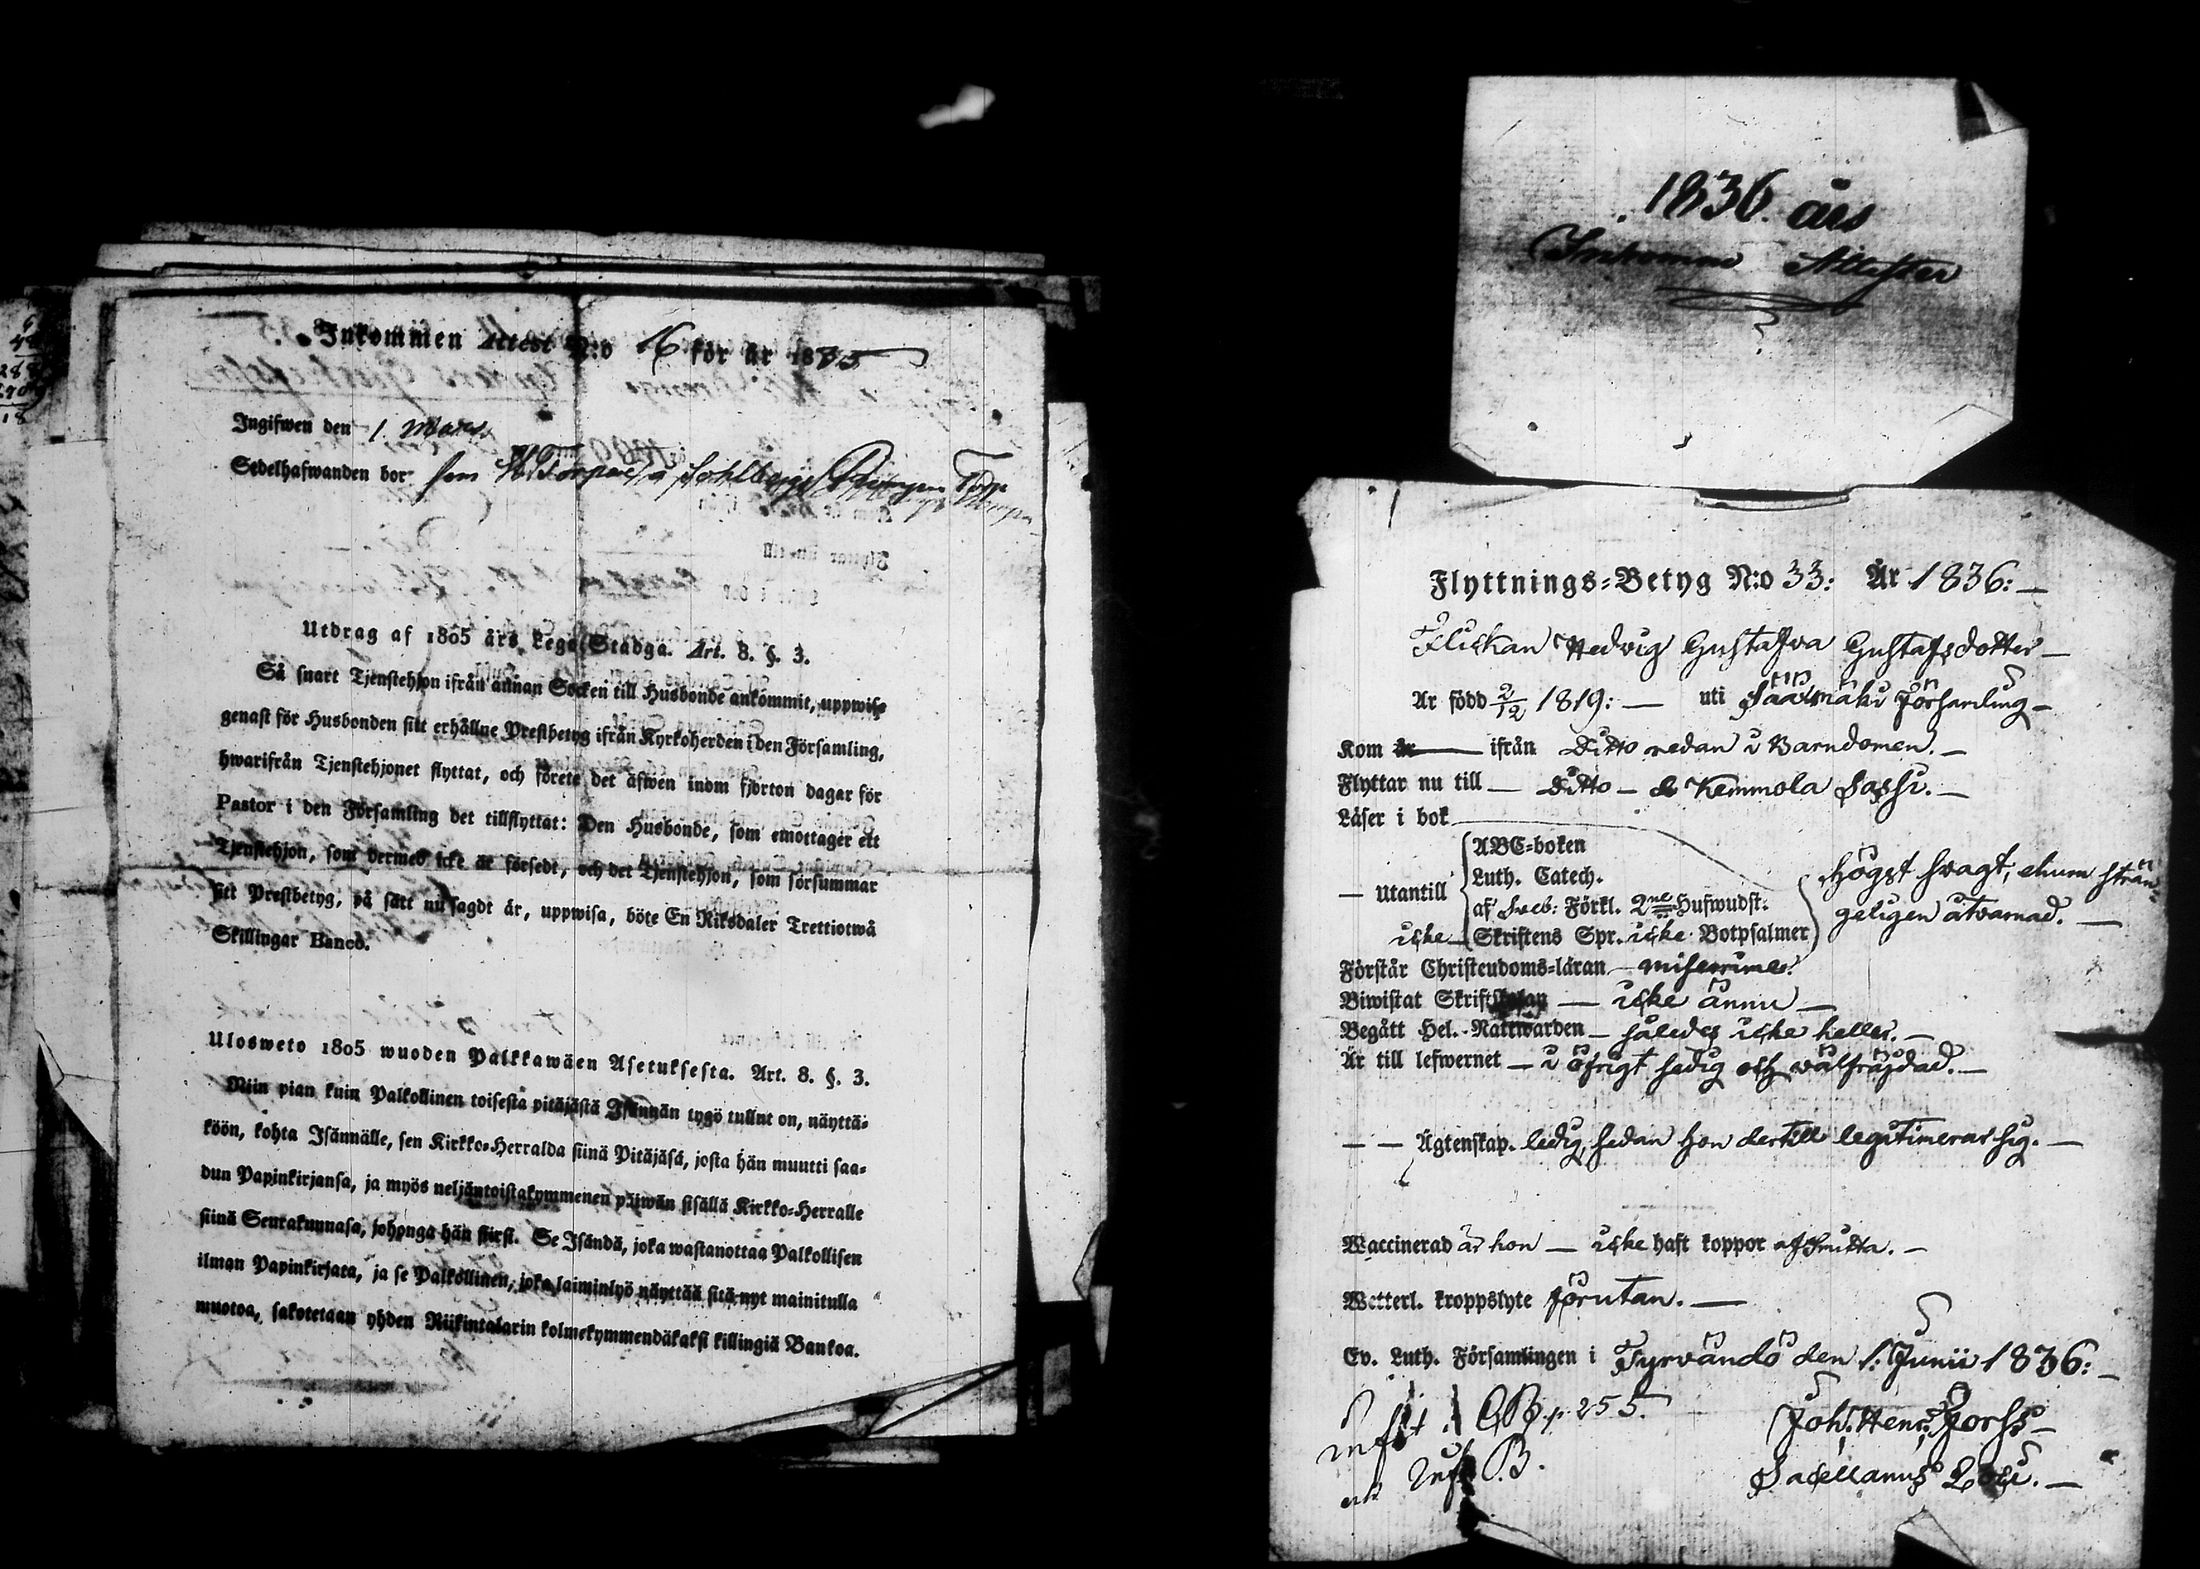 Inkommen Attest N:o 16 för år 1835
Ingifwen den 1. Mars.
Sedelhafwanden bor
Utdrag af 1805 års Lego-Stadga. Art. 8. §. 3.
Så snart Tjenstehjon ifrån annan Socken till Husbonde ankommit, uppwise
genast för Husbonden sitt erhållne Prestbetyg ifrån Kyrkoherden i den Församling,
hwarifrån Tjenstehjonet flyttat, och förete det äfwen inom fjorton dagar för
Pastor i den Församling det tillflyttat: Den Husbonde, som emottager ett
Tjenstehjon, som dermed icke är försedt, och det Tjenstehjon, som försummar
sitt Prestbetyg, på sätt nu sagdt är, uppwisa, böte En Riksdaler Trettiotwå
Skillingar Banco.
Ulosweto 1805 wuoden Palkkawäen Asetuksesta. Art. 8. §. 3.
Niin pian kuin Palkollinen toisesta pitäjästä Isännän tygö tullut on, näyttä-
köön, kohta Isännälle, sen Kirkko-Herralda siinä Pitäjäsä, josta hän muutti saa-
dun Papinkirjansa, ja myös neljäntoistakymmenen päiwän sisällä Kirkko-Herralle
siinä Seurakunnasa, johonga hän siirsi. Se Isändä, joka wastanottaa Palkollisen
ilman Papinkirjata, ja se Palkollinen, joka laiminlyö näyttää sitä nyt mainitulla
muotoa, sakotetaan yhden Riikintalarin kolmekymmendäkaksi killingiä Bankoa.
1836 års
Inkomne Attester
Flyttnings-Betyg N:o 33: År 1836:
Flickan Hedvig Gustafva Gustafsdotter
Är född 2/12 1819: uti Sääxmäki Församling
Kom år ifrån Ditto redan i Barndomen.
Flyttar nu till Ditto Kemmola Sassi.
Läser i bok
ABC-boken
Luth. Catech.
Utantill af Sveb: Förkl. 2ne Hufwudst:
icke Skriftens Spr. icke Botpsalmer
högst svagt, ehuru strän-
geligen åtvarnad.
Förstår Christendoms-läran miserrime:
Biwistat Skriftskolan icke ännu
Begått Hel. Nattwarden således icke heller.
Är till lefwernet i öfrigt sedig och välfräjdad.
Ägtenskap. ledig, sedan hon dertill legitimerar sig.
Waccinerad är hon icke haft koppor af Smitta.
Wetterl. kroppslyte förutan.
Ev. Luth. Församlingen i Tyrvändö den 1. Junii 1836:
p. 255.
Joh. Henr. Forss
Sacellanus Loci.